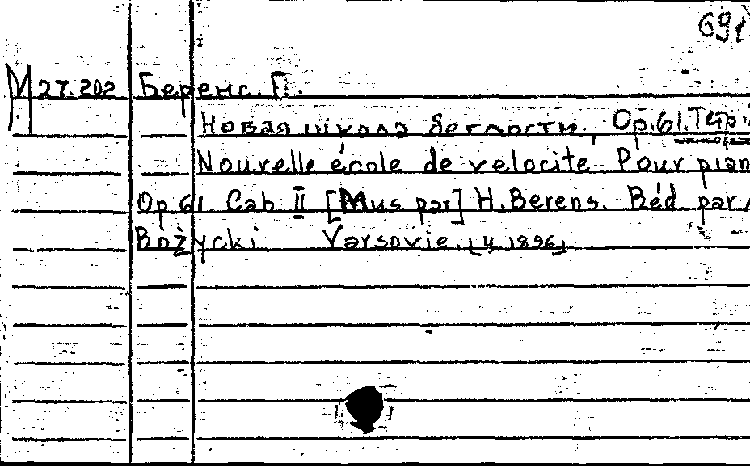 691
М 27.202 Беренс. Г.
Новая школа беглости, Op.61. Тетр.
Nouvelle école de velocite. Pour pian
Op 61 Cah II [Mus par] H. Berens. Réd par
Bożycki Varsovie. [ц. 1896]